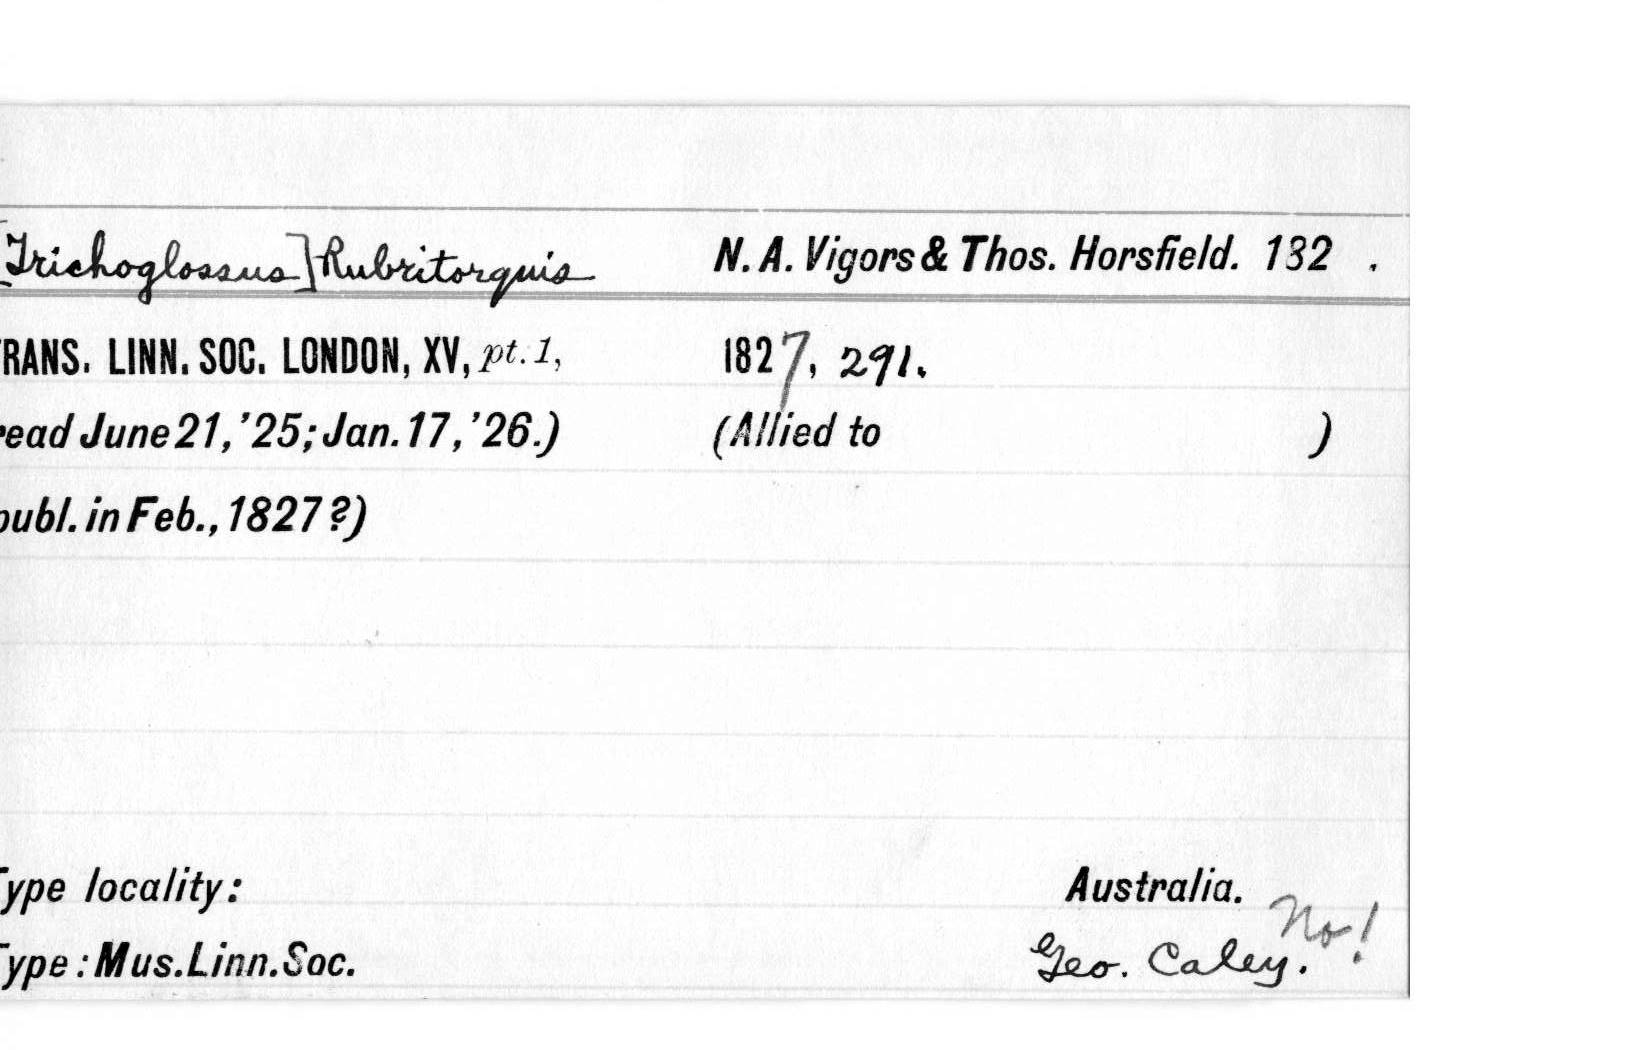 [Trichoglossus] Rubritorquis N. A. Vigors & Thos. Horsfield. 182 .
RANS. LINN. SOC. LONDON, XV, pt. 1, 1827, 291.
read June 21, '25; Jan. 17, '26.) (Allied to )
publ. in Feb., 1827?)
Type locality: Australia.
No!
Type: Mus. Linn. Soc. Geo. Caley.